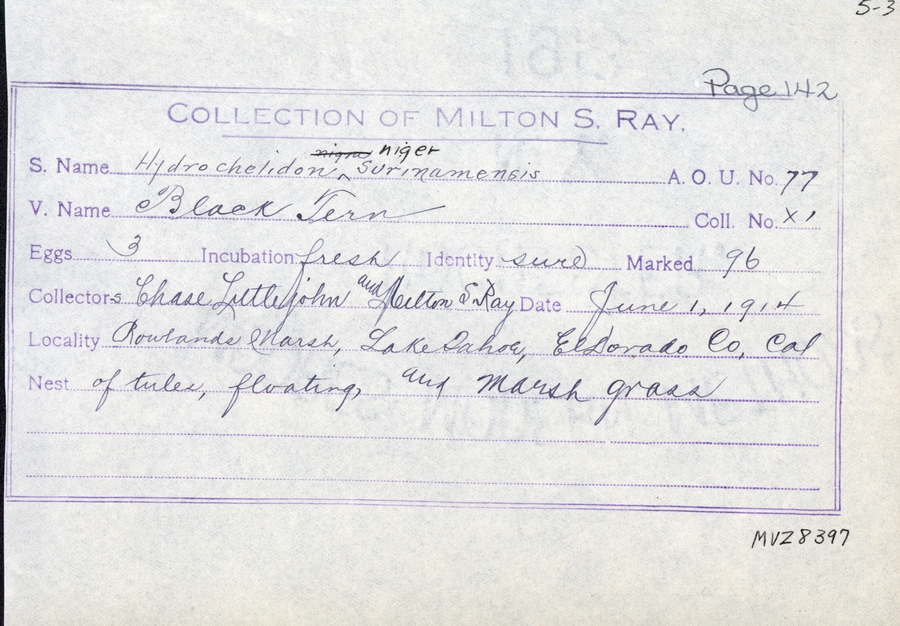 5-3
Page 142
COLLECTION OF MILTON S. RAY.
nigra niger
S. Name Hydrochelidon ^ Surinamensis A. O. U. No. 77
V. Name Black Tern Coll. No. X1
Eggs 3 Incubation fresh Identity sure Marked 96
Collectors Chase Littlejohn and Milton S. Ray Date June 1, 1914
Locality Rowlands Marsh, Lake Tahoe, El Dorado Co, Cal
Nest of tules, floating, and marsh grass
MVZ 8397